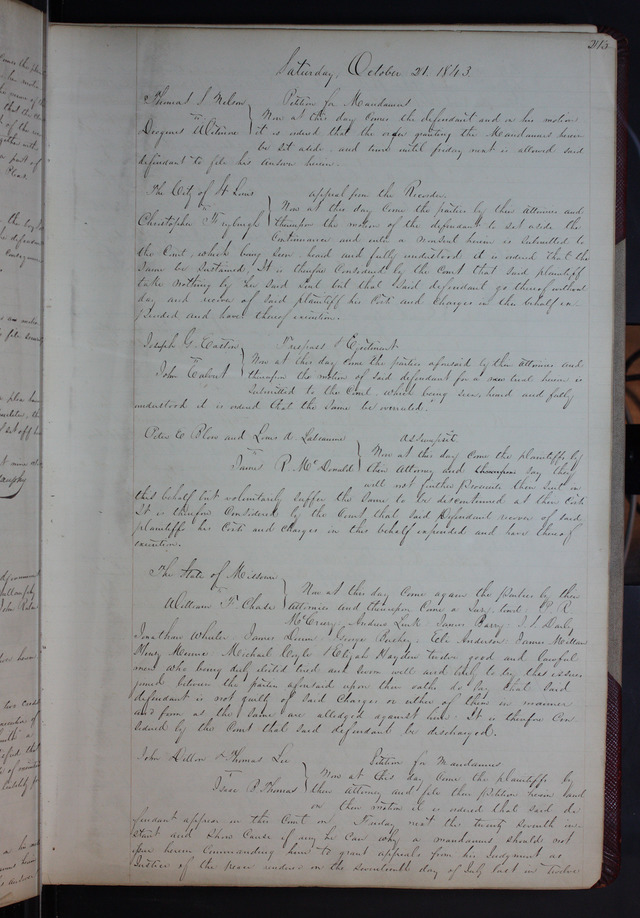 213
Saturday, October 21. 1843.
Thomas S Nelson Petition for Mandamus
vs Now at this day comes the defendant and on his motion
it is ordered that the order granting the Mandamus herein
be set aside and time until friday next is allowed said
defendant to file his answer herein.
The City of St Louis appeal from the Recorder
vs Now at this day come the parties by their attornies and
Christophe thereupon the motion of the defendant to set aside the
Continuance and enter a nonsuit herein is submitted to
the Court, which being seen, heard and fully understood it is ordered that the
same be sustained, It is therefore Considered by the Court that said plaintiff
take nothing by her said suit but that said defendant go thereof without
day and recover of said plaintiff his Costs and Charges in this behalf ex-
pended and have thereof execution.
Joseph G. Trespass & Ejectment
vs Now at this day come the parties aforesaid by their attornies and
John Calvert thereupon the motion of said defendant for a new trial herein is
submitted to the Court, which being seen, heard and fully
understood it is ordered that the same be overruled.
Peter E Blow and Louis A. Labeaume assumpsit.
vs Now at this day come the plaintiffs by
James R. McDonald their attorney and say they
will not further prosecute their suit in
this behalf but voluntarily suffer the same to be discontinued at their Costs
It is therefore Considered by the Court that said Defendant recover of said
plaintiffs his Costs and Charges in this behalf expended and have thereof
execution.
The State of Missouri
vs Now at this day Come again the parties by their
William F. Chase attornies and thereupon Come a Jury towit, P. R
McCreary, Andrew Link James Barry, J. S. Daily,
Jonathan Wheeler James Dunn George Eli Anderson James Wilson
Henry Michael Coyle & Elijah Hayden twelve good and lawful
men who being duly elected tried and sworn well and truly to try the issues
joined between the parties aforesaid upon their oaths do say that said
defendant is not guilty of said Charges or either of them in manner
and form as the same are alledged against him. It is therefore Con
sidered by the Court that said defendant be discharged.
John Dillon & Thomas Lee Petition for Mandamus
vs Now at this day come the plaintiffs by
Isaac P. Thomas their Attorney and file their petition herein and
on their motion it is ordered that said de
fendant appear in this Court on Friday next the twenty seventh in-
stant and shew Cause if any he can why a mandamus should not
issue herein Commanding him to grant appeals from his Judgment as
Justice of the peace rendered on the seventeenth day of July last in Twelve